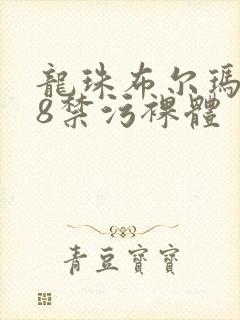 龍珠布尔瑪
8禁污裸體
青豆寶寶